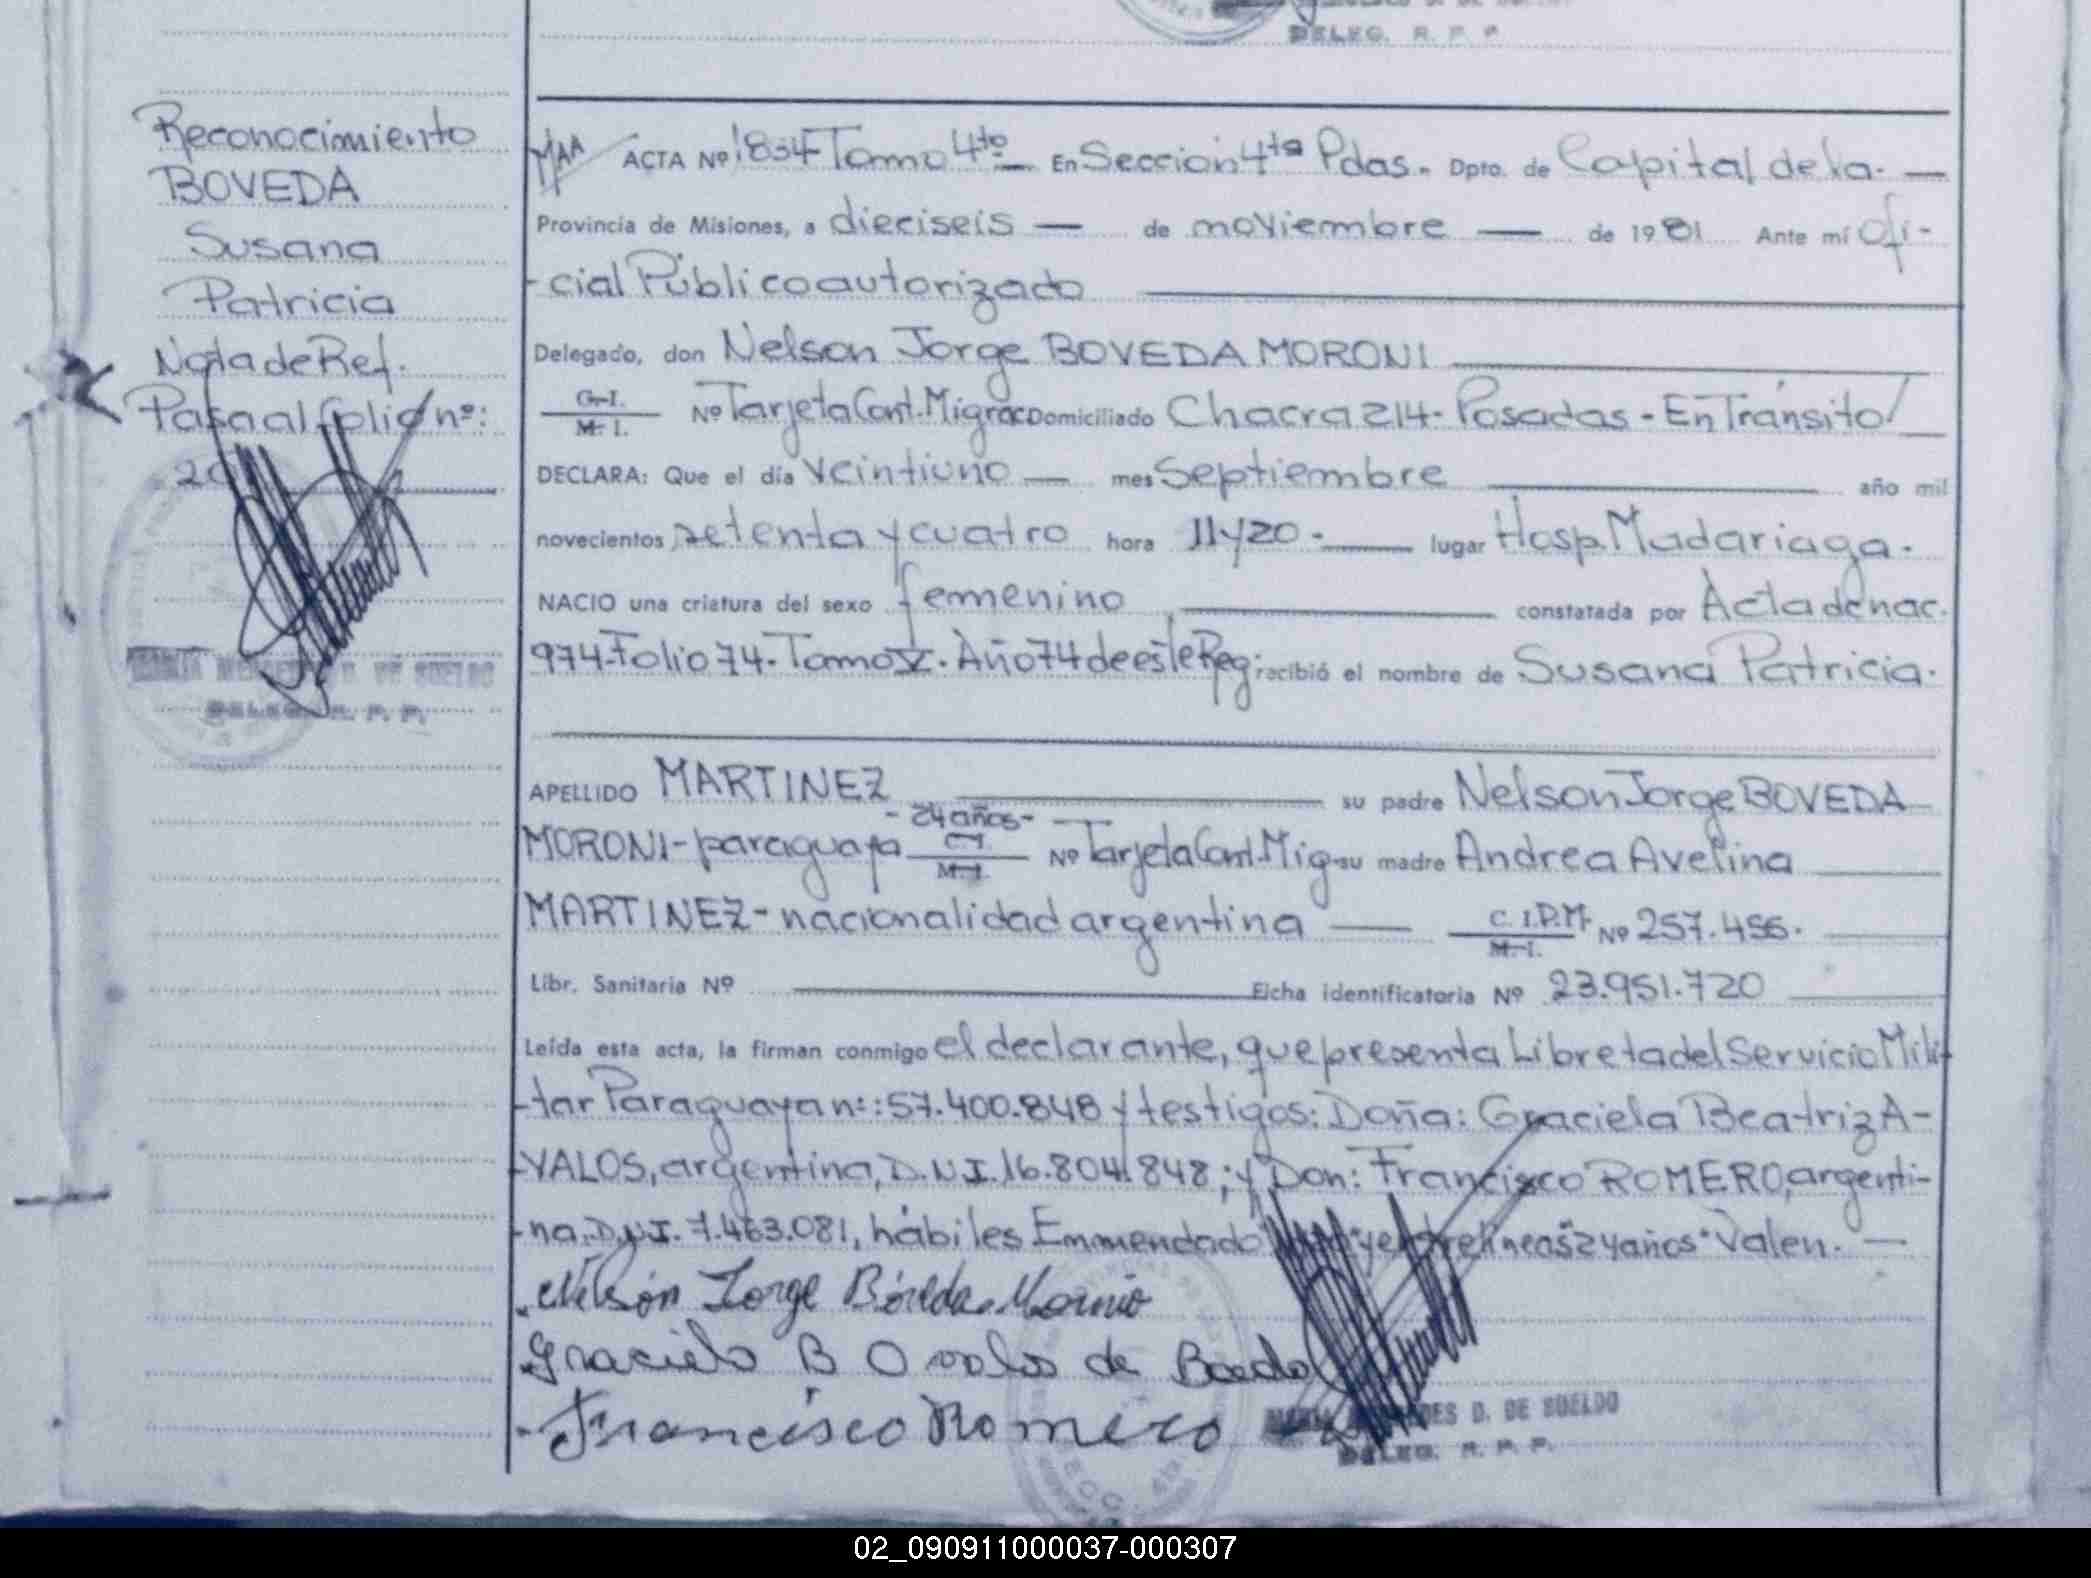 DELEG. R. P. P.
Reconocimiento
BOVEDA
Susana
Patricia
Nota de Ref.
Pasa al folio nº:
MAA ACTA Nº 1834 Tomo 4to — En Sección 4ta Pdas. Dpto. de Capital de la. —
Provincia de Misiones, a dieciseis — de noviembre — de 1981 Ante mí Ofi-
-cial Público autorizado
Delegado, don Nelson Jorge BOVEDA MORONI
C. I.
M. I. Nº Tarjeta Cont. Migrac Domiciliado Chacra 214 - Posadas - En Tránsito/
DECLARA: Que el día veintiuno — mes Septiembre — año mil
novecientos setenta y cuatro hora 11y20.— lugar Hosp. Madariaga.
NACIO una criatura del sexo femenino — constatada por Acta de nac.
974-Folio 74-Tomo V. Año 74 de este Reg. recibió el nombre de Susana Patricia.
APELLIDO MARTINEZ — su padre Nelson Jorge BOVEDA
-24 años-
MORONI - paraguaya C. I.
M. I. Nº Tarjeta Cont. Mig su madre Andrea Avelina
MARTINEZ - nacionalidad argentina — C. I.P.M.
M. I. Nº 257.456.
Libr. Sanitaria Nº — Ficha identificatoria Nº 23.951.720
Leída esta acta, la firman conmigo el declarante, que presenta Libreta del Servicio Mili-
-tar Paraguaya nº: 57.400.848 y testigos: Doña: Graciela Beatriz A-
-VALOS, argentina, D.N.I. 16.804.848; y Don: Francisco ROMERO, argenti-
-na, D.N.I. 7.463.081, hábiles Emmendado y entrelineas "24 años" Valen. —
Nelson Jorge Bóveda Moroni
Graciela B Avalos de
Francisco Romero
MARIA MERCEDES D. DE SUELDO
DELEG. R. P. P.
MARIA MERCEDES D. DE SUELDO
DELEG. R. P. P.
02_090911000037-000307